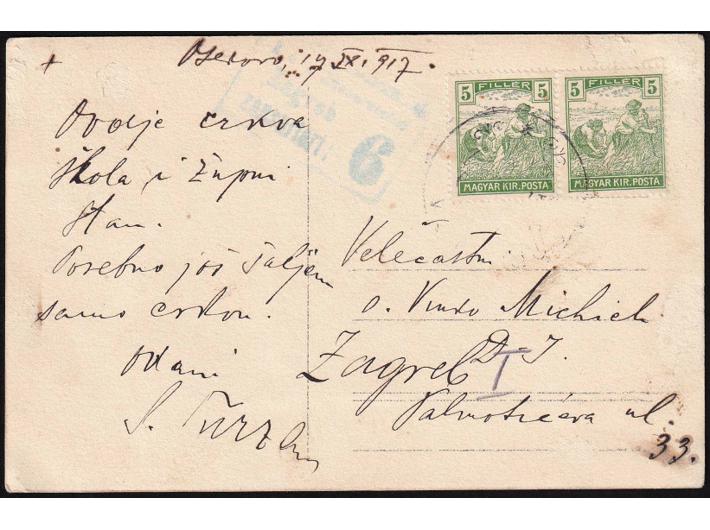 Osekovo, 19 IX. 917.
Ovdje crkva
škola i župni
stan.
Posebno još šaljem
samo crkvu.
Odani
S.
5 FILLÉR 5
MAGYAR KIR. POSTA
5 FILLÉR 5
MAGYAR KIR. POSTA
Zagreb
6
Velečastni
o. Michieli
D. I.
Zagreb
T
Palmotićeva ul.
33.